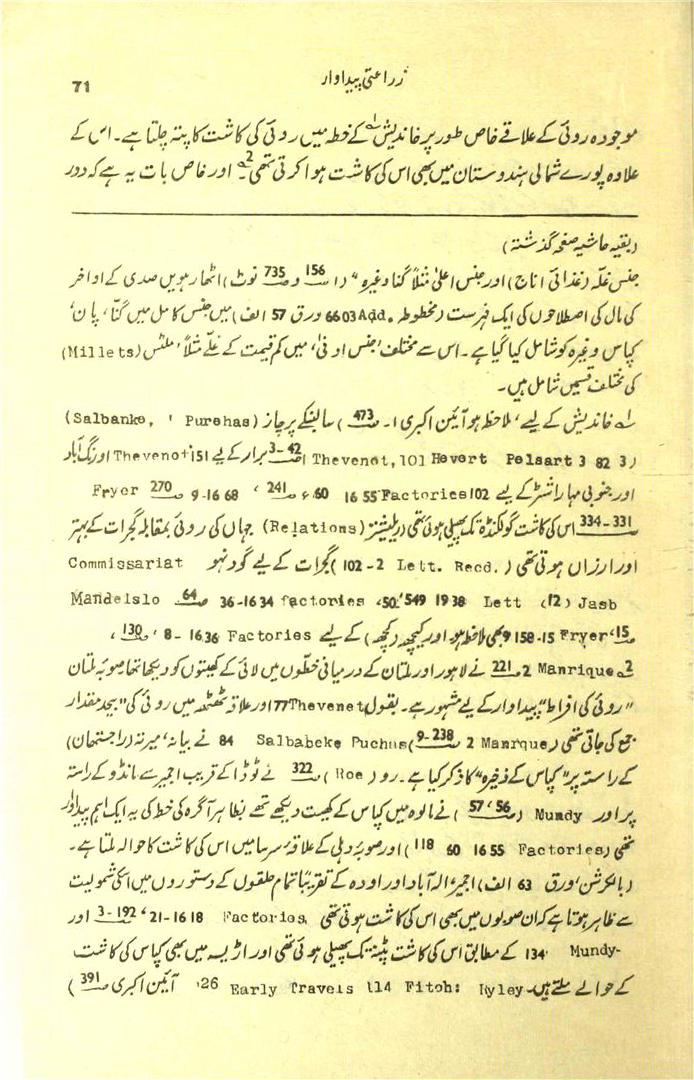 71
زراعتی پیداوار
موجودہ روئی کے علاقے خاص طور پر خاندیش؁۱ کے خطہ میں روئی کی کاشت کا پتہ چلتا ہے۔ اس کے
علاوہ پورے شمالی ہندوستان میں بھی اس کی کاشت ہوا کرتی تھی؁2۔ اور خاص بات یہ ہے کہ دور
(بقیہ حاشیہ صفحہ گذشتہ)
جنس غلّہ (غذائی اناج) اور جنس اعلیٰ مثلاً گنا وغیرہ" (۱ ص156 و ص735 نوٹ) اٹھارہویں صدی کے اواخر
کی مال کی اصطلاحوں کی ایک فہرست (مخطوطہ .Add 6603 ورق 57 الف) میں جنس کامل میں گنّا، پان،
کپاس وغیرہ کو شامل کیا گیا ہے۔ اس سے مختلف 'جنس ادنیٰ، میں کم قیمت کے غلّے مثلاً 'ملٹس (Millets)
کی مختلف قسمیں شامل ہیں۔
؁۱ خاندیش کے لیے، ملاحظہ ہو آئین اکبری ۱۔ ص473) سالبنکے پرچاز (Salbanke, ' Purehas
(3 82 3 Thevenot, 101 Hevert Pelsart ص42-3 برار کے لیے Thevenot 151 اورنگ آباد
اور جنوبی مہاراشٹر کے لیے Factories 102 16 55 60ء، ص241، 9-16 68 ص270 Fryer
ص331-334 اس کی کاشت گولکنڈہ تک پھیلی ہوئی تھی (ریلیشنز (Relations) جہاں کی روئی بمقابلہ گجرات کے بہتر
اور ارزاں ہوتی تھی (.Lett. Recd 2-102) گجرات کے لیے گودنہو Commissariat
Jasb (12) Lett 1938 549'50، factories 1634-36 ص64 Mandelslo
ص15، Fryer 15-158 9 بھی ملاحظہ ہو اور کیچھ (کچھ) کے لیے Factories 1636 -8، ص130،
؁2 Manrique 2 ص221 نے لاہور اور ملتان کے درمیانی خطّوں میں لائی کے کھیتوں کو دیکھا تھا صوبہ ملتان
"روئی کی افراط" پیداوار کے لیے مشہور ہے۔ بقول Thevenet 77 اور علاقہ ٹھٹھہ میں روئی کی "بیحد مقدار
جمع کی جاتی تھی (Manrque 2 ص238-9) Salbabcke Puchus 84 نے بیانہ، میرتہ (راجستھان)
کے راستہ پر "کپاس کے ذخیرہ" کا ذکر کیا ہے۔ رو (Roe) ص322 نے ٹوڈا کے قریب اجمیر سے مانڈو کے راستہ
پر اور Mundy (ص56، 57) نے مالوہ میں کپاس کے کھیت دیکھے تھے بظاہر آگرہ کی خط کی یہ ایک اہم پیداوار
تھی (Factories 16 55 60 118) اور صوبۂ دہلی کے علاقۂ سرسا میں اس کی کاشت کا حوالہ ملتا ہے۔
(بالکرشن، ورق 63 الف) اجمیر، الہ آباد اور اودھ کے تقریباً تمام حلقوں کے دستوروں میں اسکی شمولیت
سے ظاہر ہوتا ہے کہ ان صوبوں میں بھی اس کی کاشت ہوتی تھی Factories, 1618-21، ص192-3 اور
Mundy- 134 کے مطابق اس کی کاشت پٹنہ تک پھیلی ہوئی تھی اور اڑیسہ میں بھی کپاس کی کاشت
کے حوالے ملتے ہیں۔ Early Travels 114 Fitoh: Ryley '26 آئین اکبری ص391)